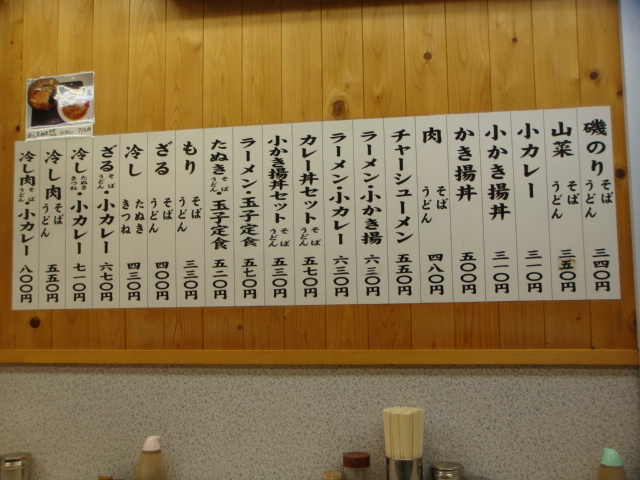 磯のり そば うどん 三四〇円
山菜 そば うどん 三五〇円
小カレー 三一〇円
小かき揚丼 三一〇円
かき揚丼 五〇〇円
肉 そば うどん 四八〇円
チャーシューメン 五五〇円
ラーメン・小かき揚 六三〇円
ラーメン・小カレー 六三〇円
カレー丼セット そば うどん 五七〇円
小かき揚丼セット そば うどん 五三〇円
ラーメン・玉子定食 五七〇円
たぬき そば うどん・玉子定食 五二〇円
もり そば うどん 三三〇円
ざる そば うどん 四〇〇円
冷し たぬき きつね 四三〇円
ざる そば うどん・小カレー 六七〇円
冷し たぬき きつね・小カレー 七一〇円
冷し肉 そば うどん 五五〇円
冷し肉 そば うどん・小カレー 八〇〇円